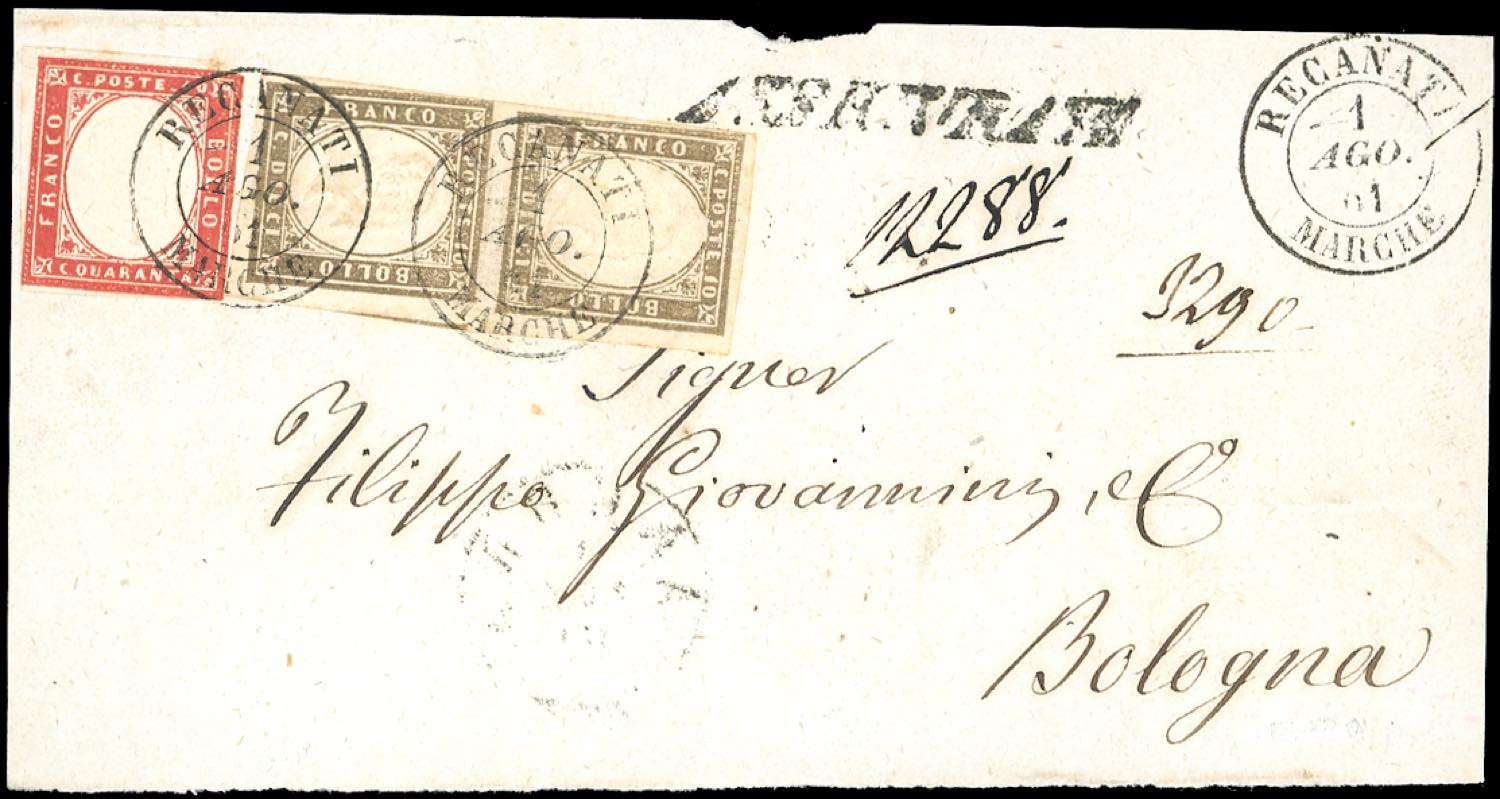 C. POSTE. 40
FRANCO
BOLLO
C QUARANTA
FRANCO
C. DIECI
POSTE
BOLLO
FRANCO
C. DIECI
C. POSTE 10
BOLLO
RECANATI
1
AGO.
61
MARCHE
RECANATI
1
AGO.
MARCHE
RECANATI
1
AGO.
61
MARCHE
12288.
3290
Signor
Filippo Giovannini, e C°
Bologna